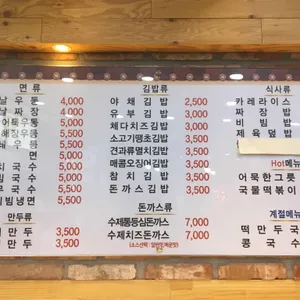 면 류
날 우 동 4,000
날 짜 장 4,000
어묵우동 5,000
해장우동 5,500
면 5,500
국 수 5,000
국 수 5,500
국 수 5,500
빔냉면 5,500
만두류
만 두 3,500
만 두 3,500
김밥류
야 채 김 밥 2,500
유 부 김 밥 3,000
체다치즈김밥 3,000
소고기땡초김밥 3,000
견과류멸치김밥 3,500
매콤오징어김밥 3,500
참 치 김 밥 3,500
돈까스김밥 3,500
돈까스류
수제통등심돈까스 7,000
수제치즈돈까스 7,000
식사류
카레라이스
짜 장 밥
비 빔 밥
제 육 덮 밥
Hot메뉴
어묵한그릇
국물떡볶이
계절메뉴
떡 만 두 국
콩 국 수